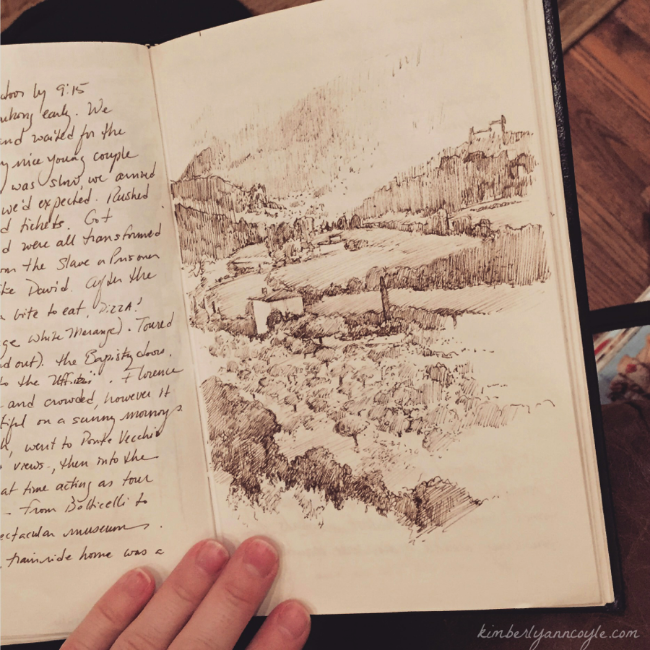 door by 9:15
early. We
and waited for the
nice young couple
was slow, we arrived
we'd expected. Rushed
tickets. Got
were all transformed
from the Slave or Prisoner
the David. After the
bite to eat, PIZZA!
White Merange). Toured
out). the Baptistry doors,
to the "Uffitsi". Florence
and crowded, however it
on a sunny morning
went to Ponte Vecchio
views, then into the
at time acting as tour
- From Botticelli to
museum.
trainride home was a
kimberlyanncoyle.com